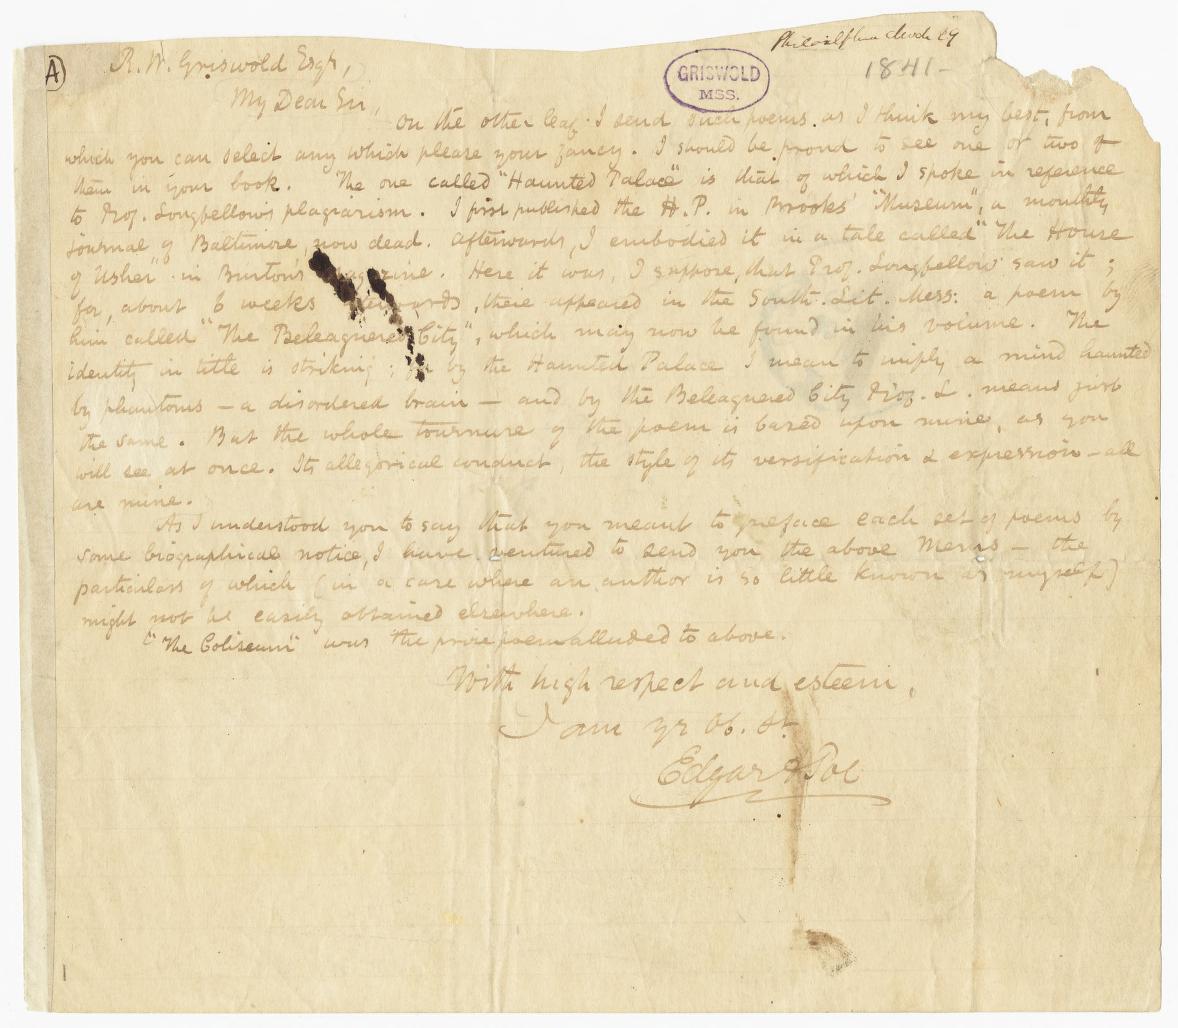 Philadelphia March 29
1841-
A
R. W. Griswold Esqr,
GRISWOLD
MSS.
My Dear Sir,
On the other leaf I send such poems as I think my best, from
which you can select any which please your fancy. I should be proud to see one or two of
them in your book. The one called "Haunted Palace" is that of which I spoke in reference
to Prof. Longfellow's plagiarism. I first published the H.P. in Brooks' "Museum", a monthly
journal of Baltimore, now dead. Afterwards, I embodied it in a tale called "The House
of Usher" in Burton's Magazine. Here it was, I suppose, that Prof. Longfellow saw it;
for, about 6 weeks afterwards, there appeared in the South. Lit. Mess: a poem by
him called "The Beleaguered City", which may now be found in his volume. The
identity in title is striking; by the Haunted Palace I mean to imply a mind haunted
by phantoms — a disordered brain — and by the Beleaguered City Prof. L. means just
the same. But the whole tournure of the poem is based upon mine, as you
will see at once. Its allegorical conduct, the style of its versification & expression — all
are mine.
As I understood you to say that you meant to preface each set of poems by
some biographical notice, I have ventured to send you the above Mems — the
particulars of which (in a case where an author is so little known as myself)
might not be easily obtained elsewhere.
"The Coliseum" was the prize poem alluded to above.
With high respect and esteem,
I am yr Ob. St.
Edgar A Poe